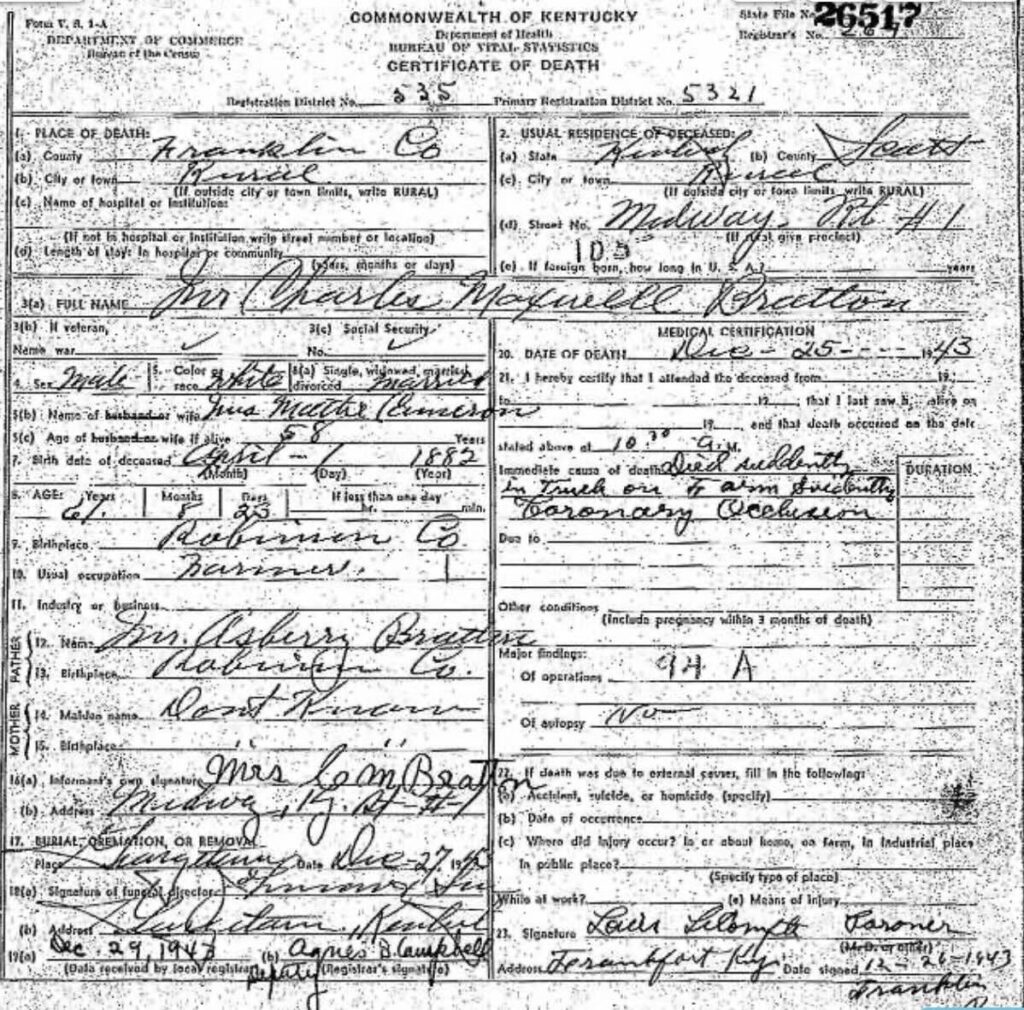 Form V. S. 1-A
DEPARTMENT OF COMMERCE
Bureau of the Census
COMMONWEALTH OF KENTUCKY
Department of Health
BUREAU OF VITAL STATISTICS
CERTIFICATE OF DEATH
State File No. 26517
Registrar's No. 267
Registration District No. 535 Primary Registration District No. 5321
1. PLACE OF DEATH:
(a) County Franklin Co
(b) City or town Rural
(If outside city or town limits, write RURAL)
(c) Name of hospital or institution:
(If not in hospital or institution write street number or location)
(d) Length of stay: in hospital or community
(years, months or days)
2. USUAL RESIDENCE OF DECEASED:
(a) State Kentucky (b) County Scott
(c) City or town Rural
(If outside city or town limits write RURAL)
(d) Street No. Midway Rt #1
(If rural give precinct)
105
(e) If foreign born, how long in U. S. A.? years
3(a) FULL NAME Mr Charles Maxwell Bratton
3(b) If veteran,
Name war
3(c) Social Security
No.
4. Sex Male 5. Color or race White 6(a) Single, widowed, married, divorced married
6(b) Name of husband or wife Mrs Mattie Cameron
6(c) Age of husband or wife if alive 58 Years
7. Birth date of deceased April - 1 1882
(Month) (Day) (Year)
8. AGE: Years Months Days If less than one day
61 8 23 hr. min.
9. Birthplace Robinson Co
10. Usual occupation Farmer.
11. Industry or business
FATHER
12. Name Mr. Asberry Bratton
13. Birthplace Robinson Co.
MOTHER
14. Maiden name Dont Know
15. Birthplace " "
16(a) Informant's own signature Mrs C M Bratton
(b) Address Midway, Ky. Rt #1
17. BURIAL, CREMATION, OR REMOVAL
Place Georgetown Date Dec-27, 19
18(a) Signature of funeral director
(b) Address Georgetown, Kentucky
19(a) Dec 29, 1943 (b) Agnes B. Campbell
(Data received by local registrar) (Registrar's signature)
Deputy
MEDICAL CERTIFICATION
20. DATE OF DEATH Dec - 25 - - - 1943
21. I hereby certify that I attended the deceased from 19
to 19 , that I last saw h alive on
19 and that death occurred on the date
stated above at 10.30 a. M.
Immediate cause of death Died suddently
in Truck on Farm Evidently
Coronary Occlusion
DURATION
Due to
Other conditions
(Include pregnancy within 3 months of death)
Major findings:
Of operations 94 A
Of autopsy No
22. If death was due to external causes, fill in the following:
(a) Accident, suicide, or homicide (specify)
(b) Date of occurrence
(c) Where did injury occur? In or about home, on farm, in industrial place
in public place?
(Specify type of place)
While at work? (e) Means of injury
23. Signature Coroner
(M. D. or other)
Address Frankfort Ky. Date signed 12-26-1943
Franklin